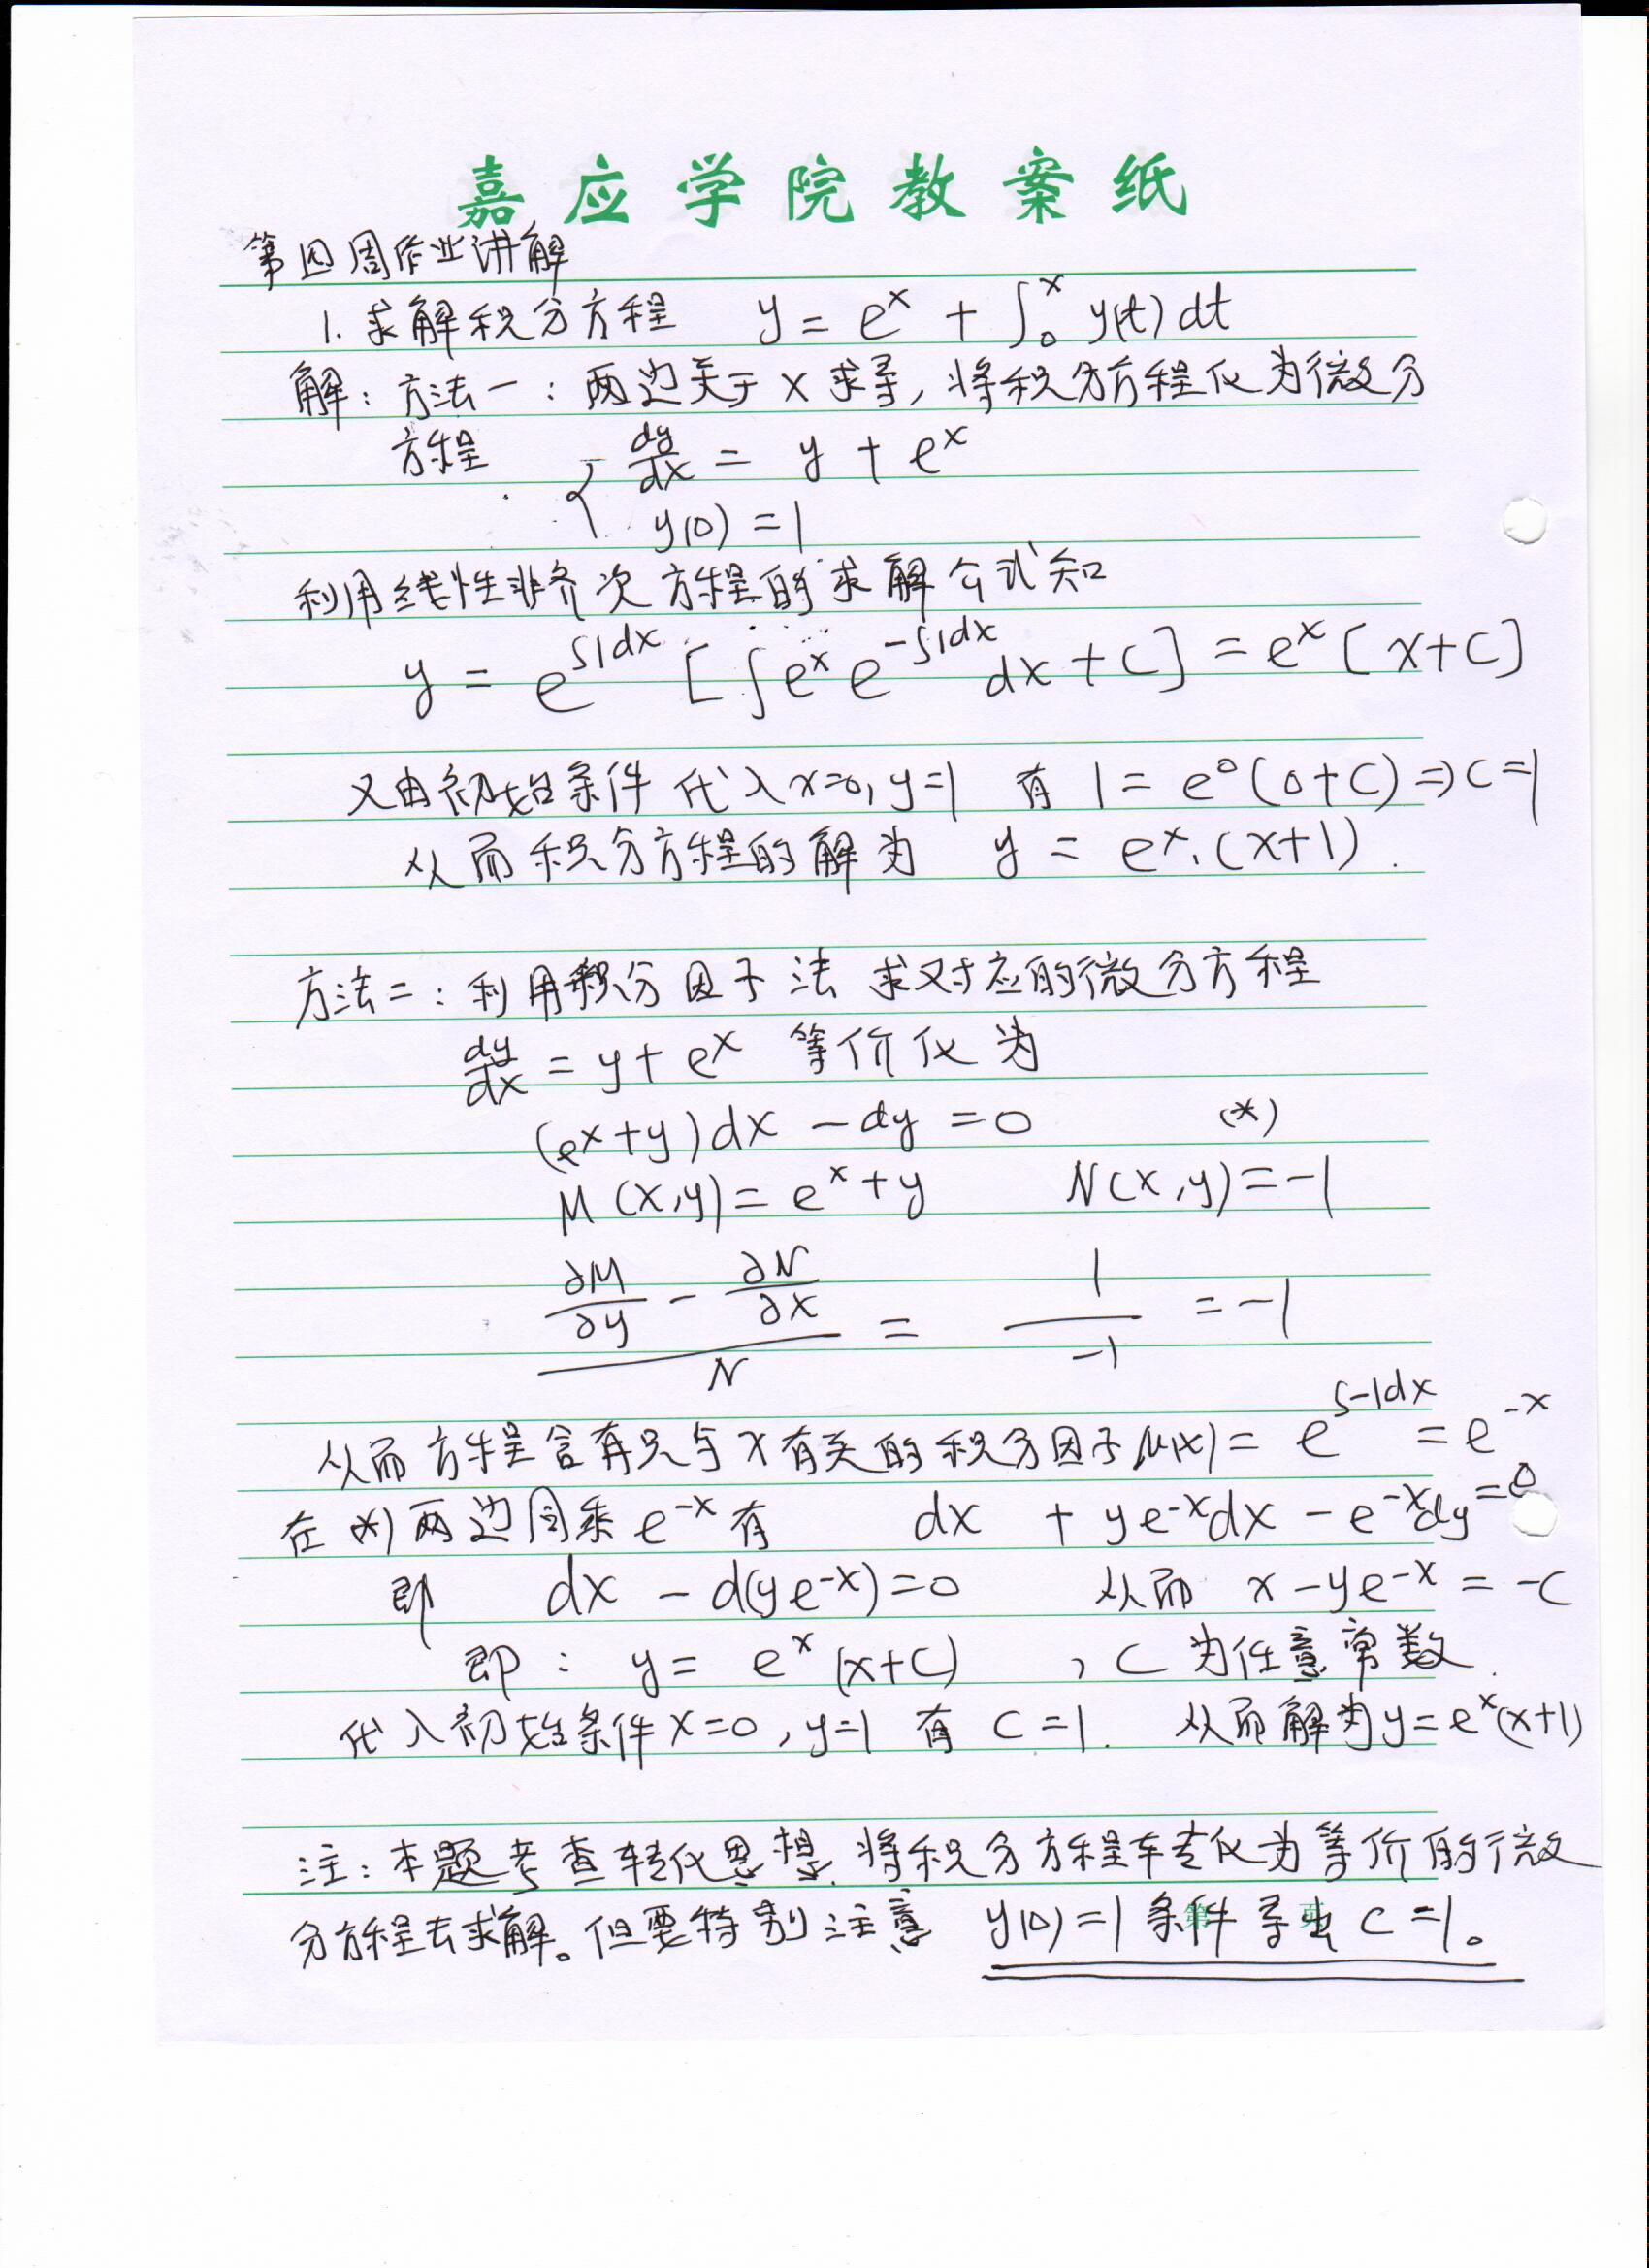 嘉应学院教案纸
第四周作业讲解
1. 求解积分方程 y = e^x + ∫_0^x y(t) dt
解：方法一：两边关于 x 求导，将积分方程化为微分
方程 { dy/dx = y + e^x
y(0) = 1
利用线性非齐次方程的求解公式知
y = e^{∫1dx} [∫e^x e^{-∫1dx} dx + C] = e^x [x+C]
又由初始条件代入 x=0, y=1 有 1 = e^0 (0+C) ⇒ C=1
从而积分方程的解为 y = e^x·(x+1).
方法二：利用积分因子法求对应的微分方程
dy/dx = y + e^x 等价化为
(e^x+y)dx - dy = 0 (*)
M(x,y) = e^x + y N(x,y) = -1
(∂M/∂y - ∂N/∂x)/N = 1/(-1) = -1
从而方程含有只与 x 有关的积分因子 μ(x) = e^{∫-1dx} = e^{-x}
在(*)两边同乘 e^{-x} 有 dx + ye^{-x}dx - e^{-x}dy = 0
即 dx - d(ye^{-x}) = 0 从而 x - ye^{-x} = -C
即： y = e^x (x+C) , C 为任意常数.
代入初始条件 x=0, y=1 有 C=1. 从而解为 y = e^x(x+1)
注：本题考查转化思想. 将积分方程转化为等价的微
分方程去求解。但要特别注意 y(0)=1 条件导出 C=1。
第 页